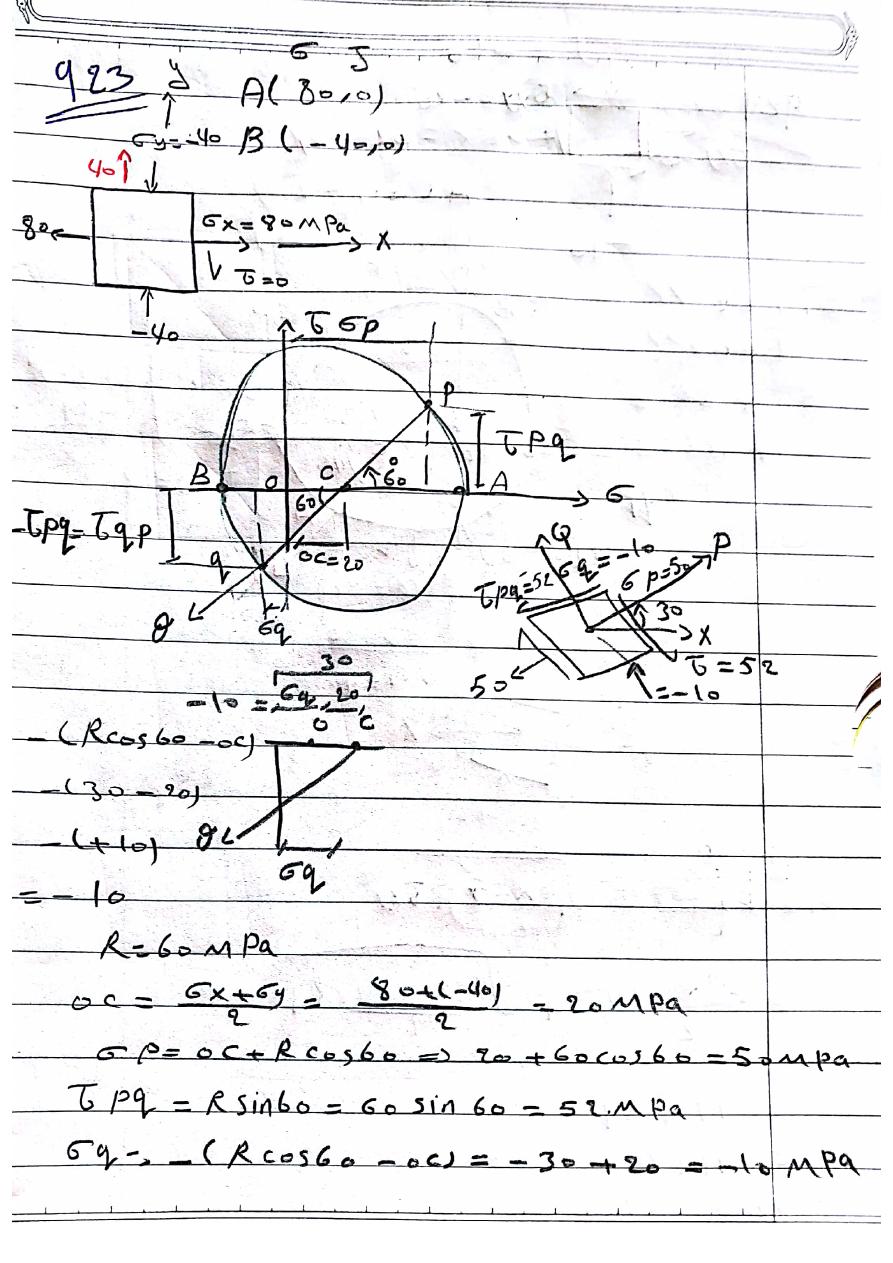 σ τ
923 y A( 80,0)
σy=-40 B ( -40,0)
40↑
80 σx=80MPa X
τ=0
-40
τ σp
P
τpq
B O C 60° A σ
60
-τpq=τqp
q OC=20
Q
σq
Q P
τpq=52 σq=-10 σp=50
30
X
τ=52
50 =-10
30
-10 = σq, 20
O C
-(Rcos60 -oc)
-(30-20)
-(+10) Q
σq
=-10
R=60MPa
oc = σx+σy/2 = 80+(-40)/2 = 20MPa
σp= oc+Rcos60 => 20+60cos60=50MPa
τpq = Rsin60=60sin60=52.MPa
σq=-(Rcos60-oc)=-30+20=-10MPa